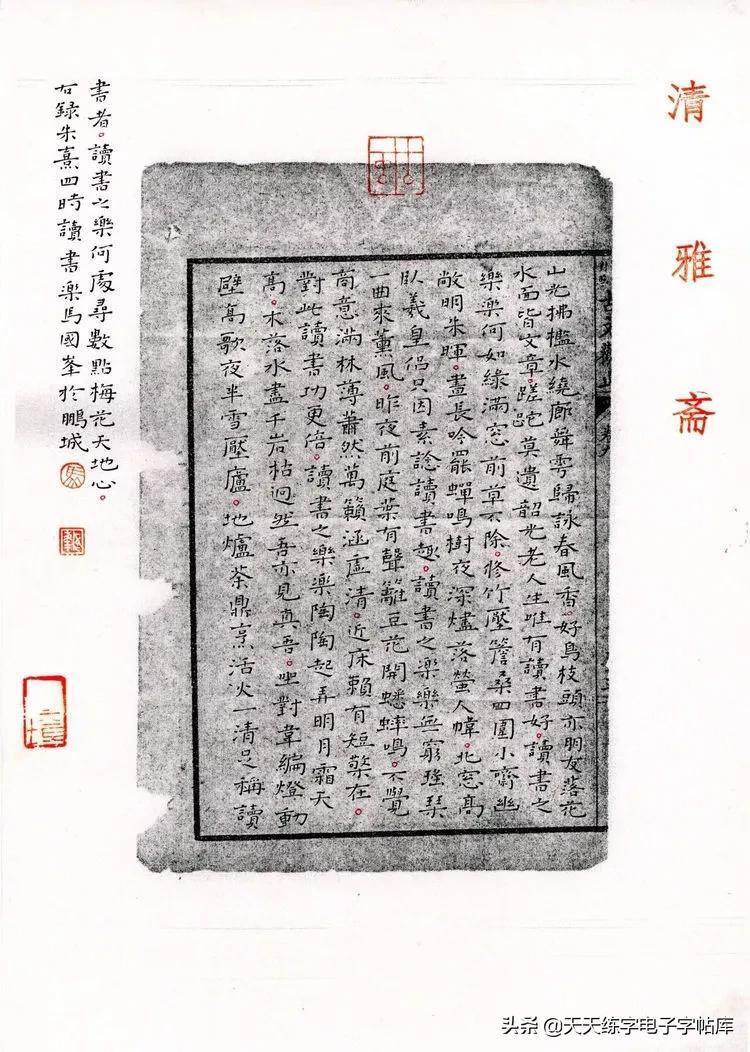 清雅斋
山光拂檻水繞廊舞雩歸詠春風香。好鳥枝頭亦朋友落花
水面皆文章。蹉跎莫遺韶光老人生唯有讀書好。讀書之
樂樂何如緑滿窓前草不除。修竹壓簷桑四圍小齋幽
敞明朱暉。晝長吟罷蟬鳴樹夜深燼落螢入幃。北窓高
臥羲皇侣只因素諗讀書趣。讀書之樂樂無窮瑤琴
一曲來薰風。昨夜前庭葉有聲籬豆花開蟋蟀鳴。不覺
商意滿林薄蕭然萬籟涵虛清。近床賴有短檠在。
對此讀書功更倍。讀書之樂樂陶陶起弄明月霜天
高。木落水盡千岩枯迥然吾亦見真吾。坐對韋編燈動
壁高歌夜半雪壓廬。地爐茶鼎烹活火一清足稱讀
書者。讀書之樂何處尋數點梅花天地心。
右録朱熹四時讀書樂馬國峯於鵬城
头条 @天天练字电子字帖库